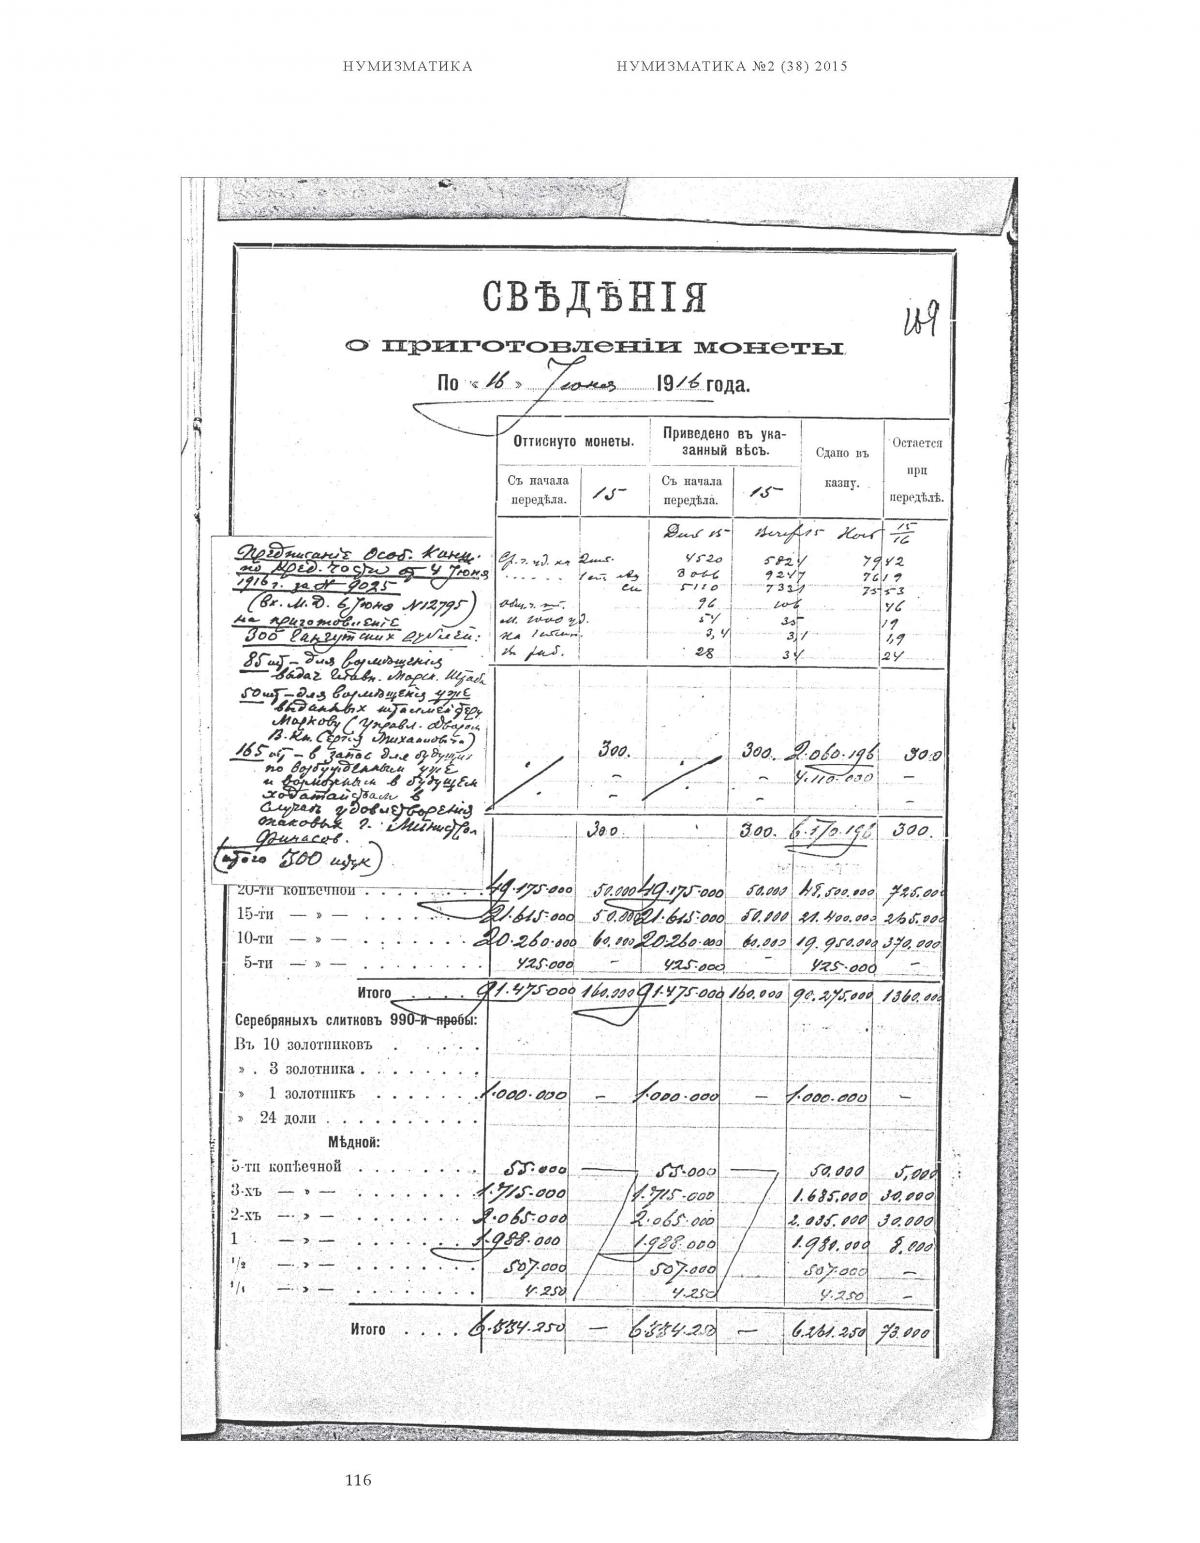 НУМИЗМАТИКА НУМИЗМАТИКА №2 (38) 2015
СВѢДѢНІЯ
109
о приготовленіи монеты
По «16» Іюня 1916 года.
Оттиснуто монеты. Приведено въ ука-
занный вѣсъ. Сдано въ казну. Остается при передѣлѣ.
Съ начала передѣла. 15 Съ начала передѣла. 15
15/16
4520 5824 7942
3066 9247 7619
5110 7321 7553
96 106 46
54 35 19
3,4 3,1 1,9
28 34 24
Предписаніе Особ. Канц.
по Кред. части от 4 Іюня
1916 г. за № 9025
(вх. М.Д. 6 Іюня №12795)
на приготовленіе
300 Гангутских рублей:
85 шт – для возмѣщенія
выдач Главн. Морск. Штаба
50 шт – для возмѣщенія уже
выданных шталмейстеру
Маркову (Управл. Двором
В. Кн. Сергѣя Михаиловича)
165 шт – в запас для будущих
по возбужденным уже
и возможным в будущем
ходатайствам в
случаѣ удовлетворения
таковых г. Министром
Финансов.
(итого 300 штук)
300. 300. 2.060.196 300
– – 4.110.000 –
– – –
300. 300. 6.170.196 300.
20-ти копѣечной . . . 49.175.000 50.000 49.175.000 50.000 48.500.000 725.000
15-ти — » — . . . 21.615.000 50.000 21.615.000 50.000 21.400.000 265.000
10-ти — » — . . . 20.260.000 60.000 20.260.000 60.000 19.950.000 370.000
5-ти — » — . . . 425.000 – 425.000 – 425.000 –
Итого . . . . 91.475.000 160.000 91.475.000 160.000 90.275.000 1360.000
Серебряныхъ слитковъ 990-й пробы:
Въ 10 золотниковъ . . . . .
» . 3 золотника . . . . . . . .
» 1 золотникъ . . . . . . 1.000.000 – 1.000.000 – 1.000.000 –
» 24 доли . . . . . . . . . .
Мѣдной:
5-ти копѣечной . . . . . . . 55.000 — 55.000 — 50.000 5,000
3-хъ — » — . . . . . . . 1.715.000 1.715.000 1.685.000 30.000
2-хъ — » — . . . . . . . 2.065.000 2.065.000 2.035.000 30.000
1 — » — . . . . . . . 1.988.000 1.988.000 1.980.000 8.000
1/2 — » — . . . . . . . 507.000 507.000 507.000 –
— » — . . . . . . . 4.250 4.250 4.250 –
Итого . . . . 6.334.250 — 6334.250 — 6.261.250 73.000
116